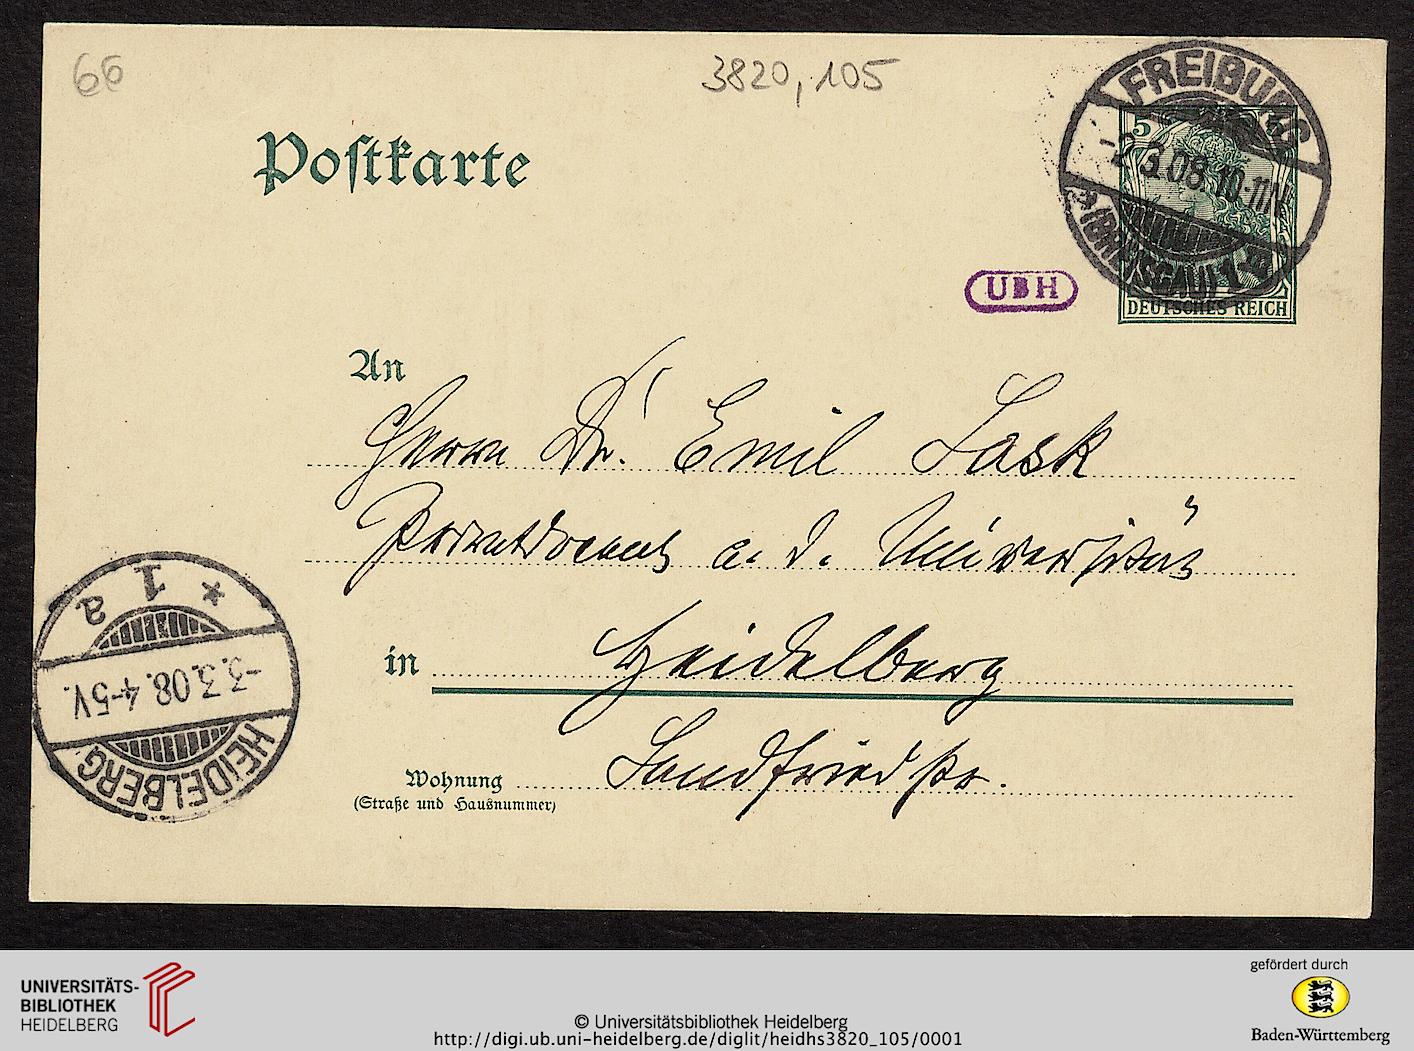 66
3820,105
Postkarte
FREIBURG
5
-2.3.08.10-11N.
(BREISGAU) 1
DEUTSCHES REICH
UBH
An
Herrn Dr. Emil Lask
Privatdocent a. d. Universität
in Heidelberg
Wohnung Landfriedstr.
(Straße und Hausnummer)
* 1 a
-3.3.08.4-5V.
HEIDELBERG.
UNIVERSITÄTS-
BIBLIOTHEK
HEIDELBERG
© Universitätsbibliothek Heidelberg
http://digi.ub.uni-heidelberg.de/diglit/heidhs3820_105/0001
gefördert durch
Baden-Württemberg